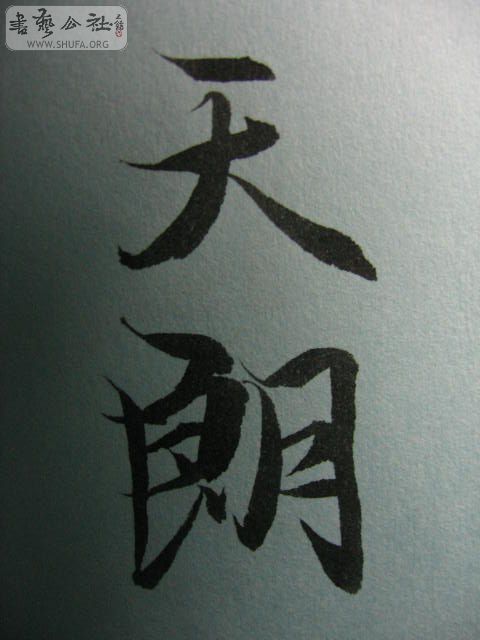 書藝公社
WWW.SHUFA.ORG
天
朗